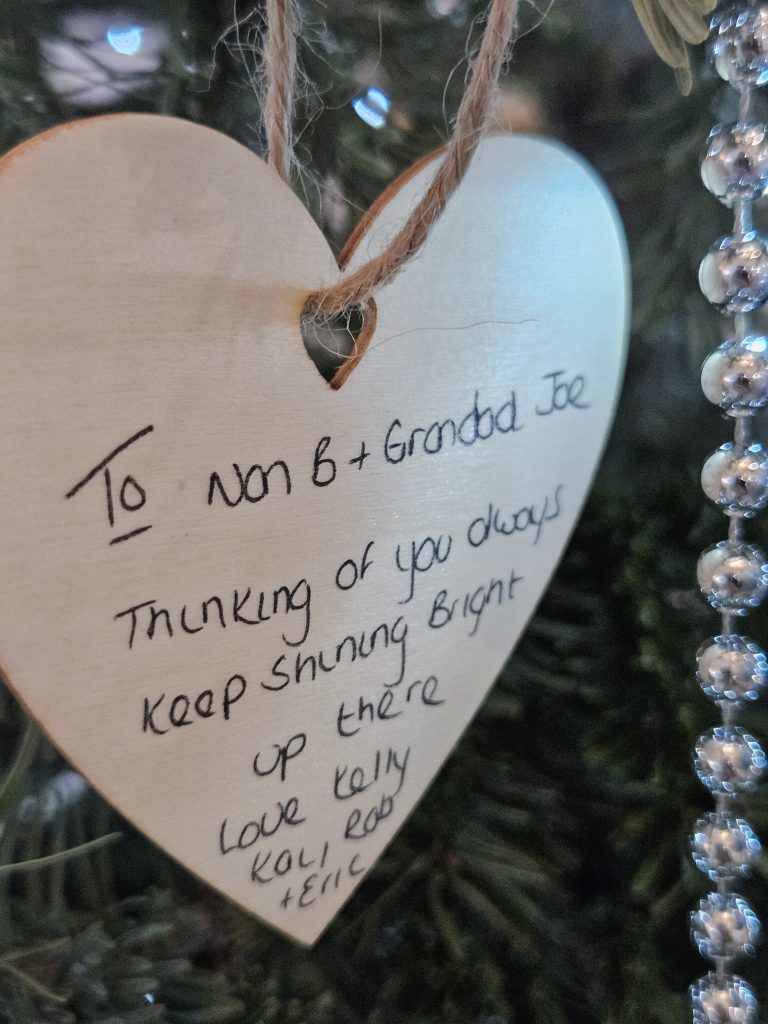 To Nan B + Grandad Joe
Thinking of you always
Keep Shining Bright
up there
Love Kelly
Kali Rob
+ Eric